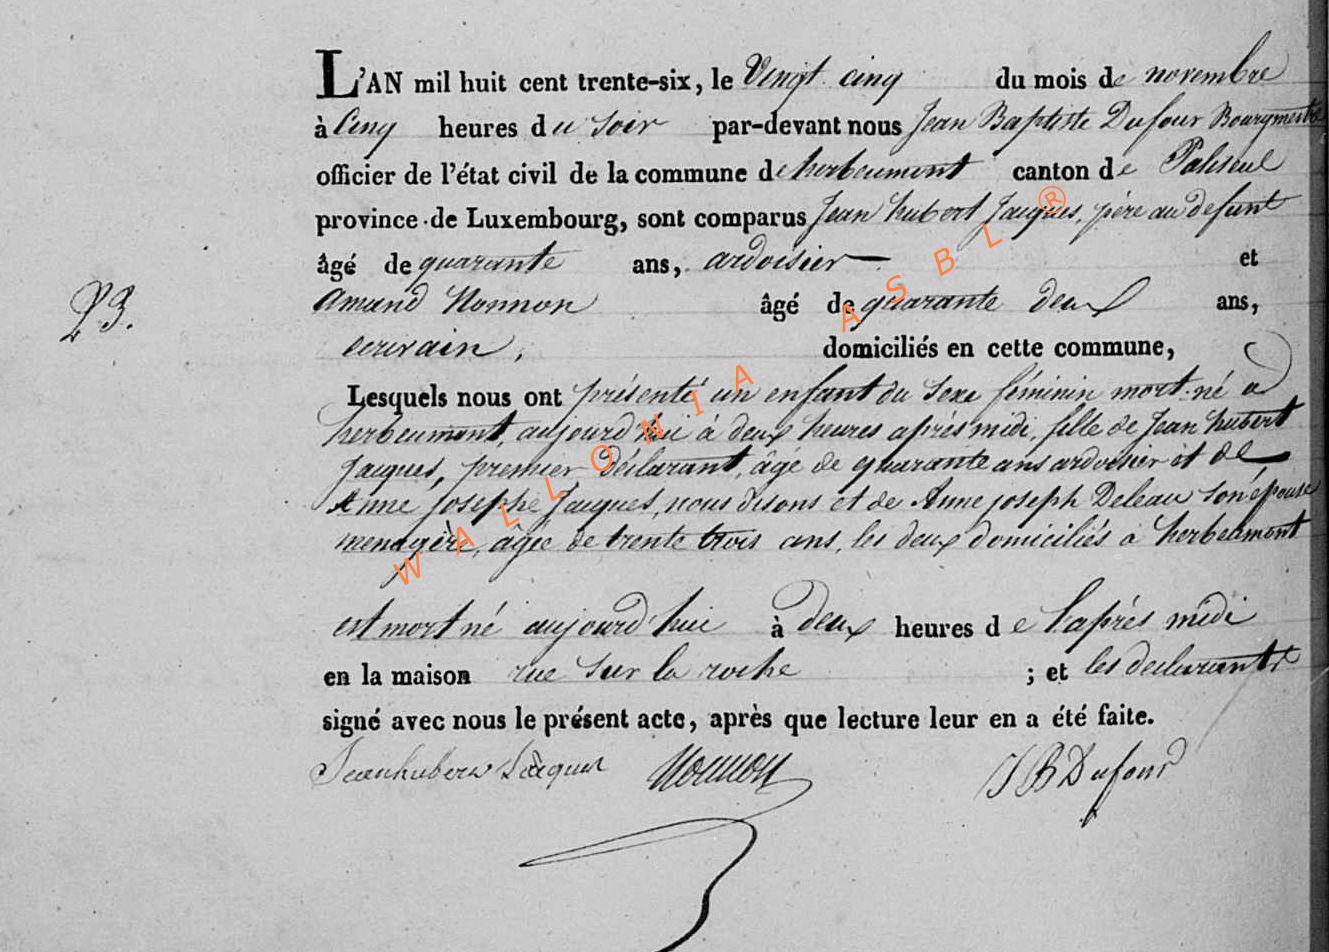 L'AN mil huit cent trente-six, le Vingt cinq du mois de novembre
à Cinq heures du soir par-devant nous Jean Baptiste Dufour Bourgmestre
officier de l'état civil de la commune de herbeumont canton de Paliseul
province de Luxembourg, sont comparus Jean hubert Jacques, père au defunt
âgé de quarante ans, ardoisier et
amand Nonnon âgé de quarante deux ans,
23.
ecrivain, domiciliés en cette commune,
Lesquels nous ont présenté un enfant du sexe féminin mort-né a
herbeumont, aujourd'hui à deux heures après midi, fille de Jean hubert
Jacques, premier déclarant, âgé de quarante ans ardoisier et de
Anne josephe Jacques, nous disons et de Anne joseph Deleau son épouse
menagère, âgée de trente trois ans, les deux domiciliés a herbeumont
est mort né aujourd'hui à deux heures de l'après midi
en la maison rue sur la roche ; et les declarants
signé avec nous le présent acte, après que lecture leur en a été faite.
Jeanhubert Jacques Nonnon J B Dufour
WALLONIA ASBL ®